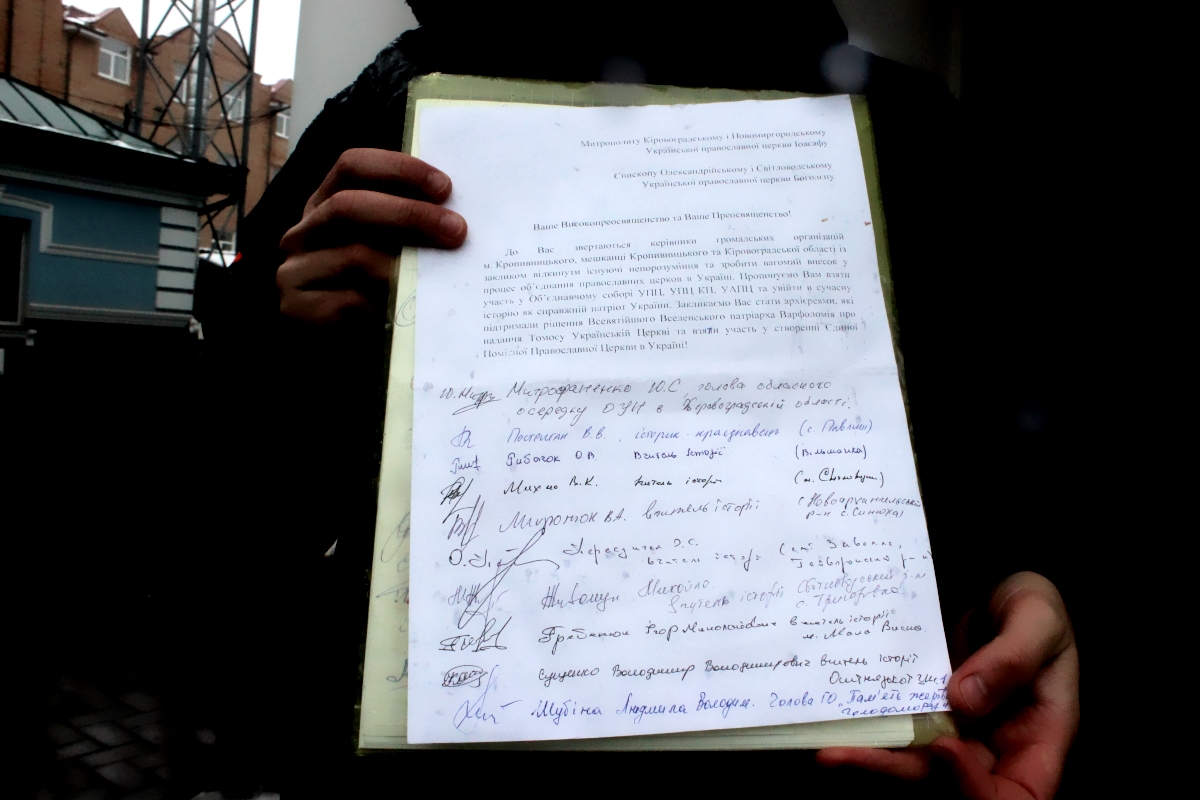 Митрополиту Кіровоградському і Новомиргородському
Української православної церкви Іоасафу
Єпископу Олександрійському і Світловодському
Української православної церкви Боголєпу
Ваше Високопреосвященство та Ваше Преосвященство!
До Вас звертаються керівники громадських організацій
м. Кропивницького, мешканці Кропивницького та Кіровоградської області із
закликом відкинути існуючі непорозуміння та зробити вагомий внесок у
процес об'єднання православних церков в Україні. Пропонуємо Вам взяти
участь у Об'єднавчому соборі УПЦ, УПЦ КП, УАПЦ та увійти в сучасну
історію як справжній патріот України. Закликаємо Вас стати архієреями, які
підтримали рішення Всевятійшого Вселенського патріарха Варфоломія про
надання Томосу Українській Церкві та взяти участь у створенні Єдиної
Помісної Православної Церкви в Україні!
Митрофаненко Ю.С, голова обласного
осередку ОУН в Кіровоградській області.
В.В., історик-краєзнавець
О.В. Вчитель Історії (Вільшанка)
В.К. вчитель історії
Миронюк В.А. вчитель історії (Новоархангельський
р-н с.Синюха)
вчитель історії
Михайло
вчитель історії
с. Григорівка
Гребенюк Ігор Миколайович вчитель історії
м. Мала Виска.
Єщенко Володимир Володимирович вчитель історії
Шубіна Людмила Володим. Голова ГО „Пам'ять жертв
голодомору